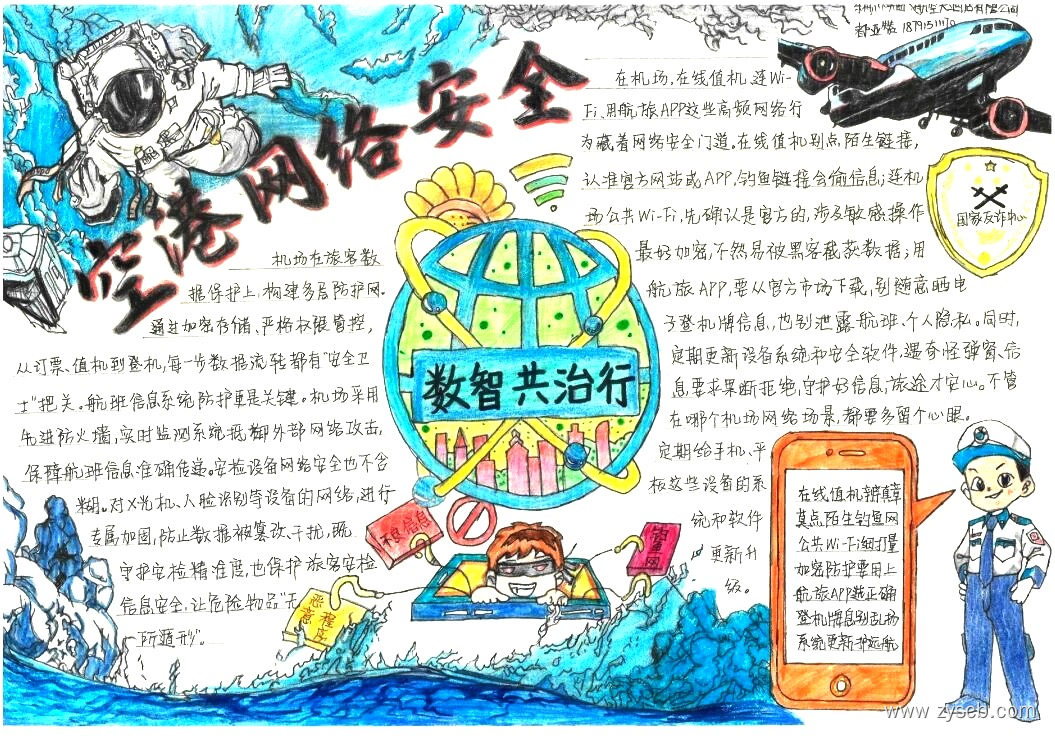 空港网络安全
在机场,在线值机、连Wi-
Fi、用航旅APP这些高频网络行
为藏着网络安全门道。在线值机别点陌生链接,
认准官方网站或APP,钓鱼链接会偷信息;连机
场公共Wi-Fi,先确认是官方的,涉及敏感操作
最好加密,不然易被黑客截获数据;用
航旅APP,要从官方市场下载,别随意晒电
子登机牌信息,也别泄露航班、个人隐私。同时,
定期更新设备系统和安全软件,遇奇怪弹窗、信
息要求果断拒绝,守护好信息,旅途才安心。不管
在哪个机场网络场景,都要多留个心眼。
定期给手机、平
板这些设备的系
统和软件
更新升
级。
国家反诈中心
机场在旅客数
据保护上,构建多层防护网。
通过加密存储、严格权限管控,
从订票、值机到登机,每一步数据流转都有"安全卫
士"把关。航班信息系统防护更是关键。机场采用
先进防火墙,实时监测系统抵御外部网络攻击,
保障航班信息准确传递。安检设备网络安全也不含
糊。对X光机、人脸识别等设备的网络,进行
专属加固,防止数据被篡改、干扰,既
守护安检精准度,也保护旅客安检
信息安全,让危险物品"无
所遁形"。
数智共治行
不良信息
钓鱼网
恶意程序
在线值机辨真
莫点陌生钓鱼网
公共Wi-Fi细打量
加密防护要用上
航旅APP选正确
登机牌息别乱扬
系统更新护远航
www.zyseb.com